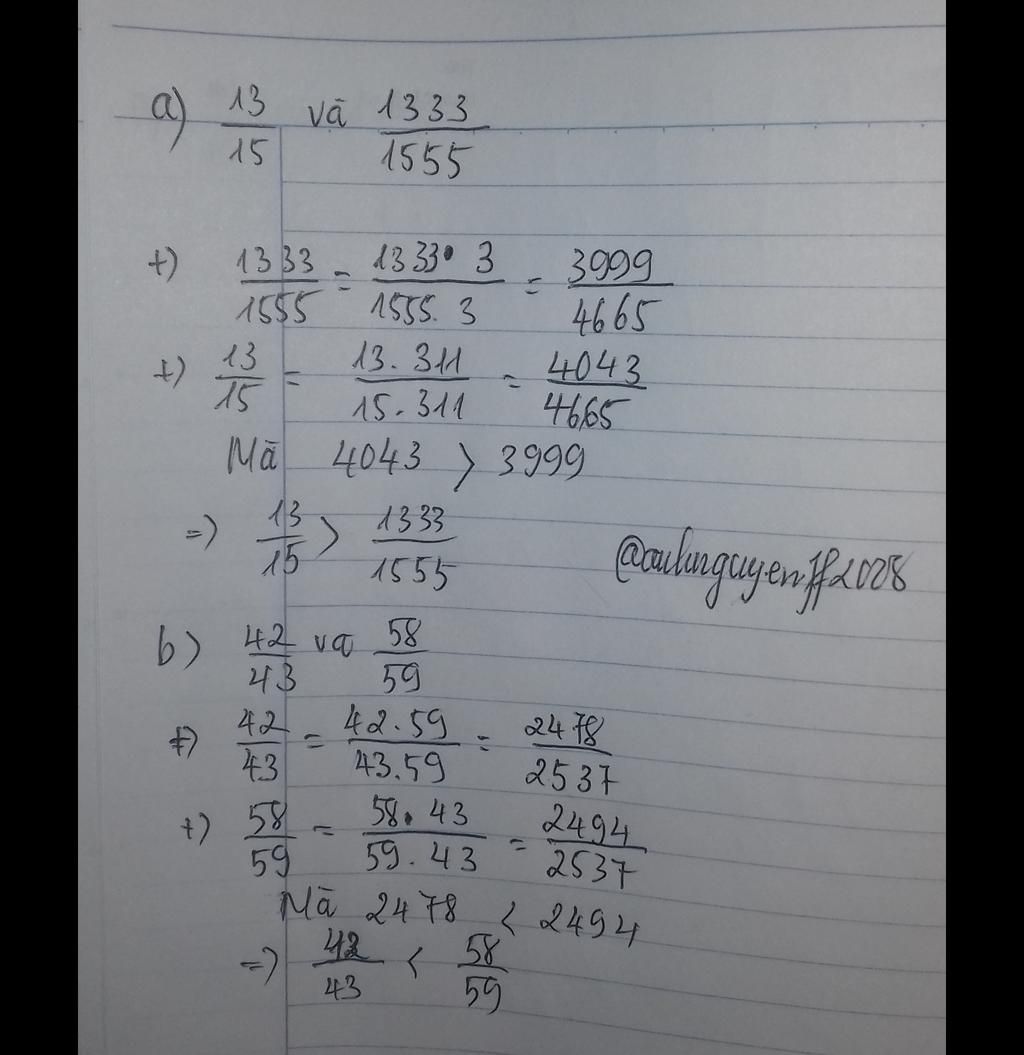 a) 13/15 và 1333/1555
+) 1333/1555 = 1333·3/1555.3 = 3999/4665
+) 13/15 = 13.311/15.311 = 4043/4665
Mà 4043 > 3999
=) 13/15 > 1333/1555
b) 42/43 và 58/59
+) 42/43 = 42.59/43.59 = 2478/2537
+) 58/59 = 58·43/59.43 = 2494/2537
Mà 2478 < 2494
=) 42/43 < 58/59